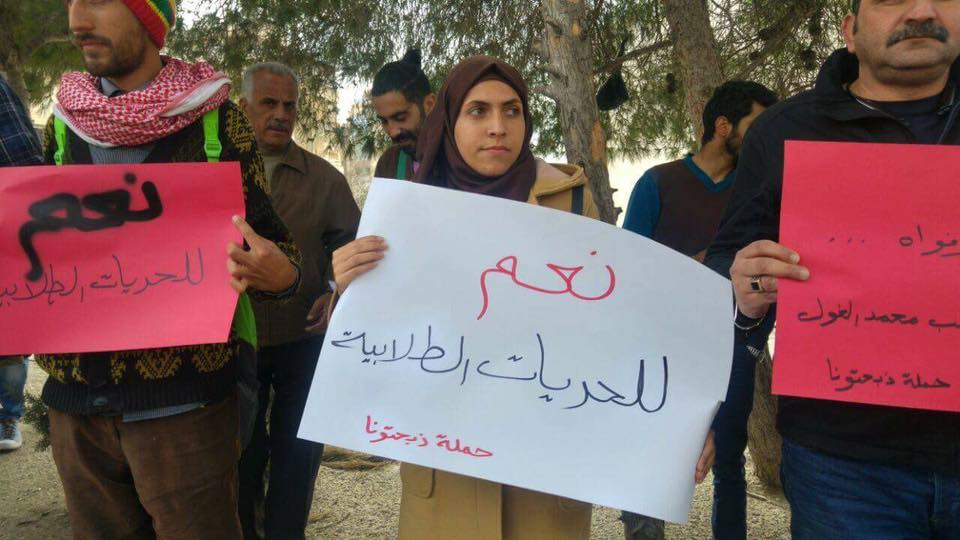 نعم
للحريات الطلابية
نعم
للحريات الطلابية
حملة ذبحتونا
...
محمد الغول
حملة ذبحتونا